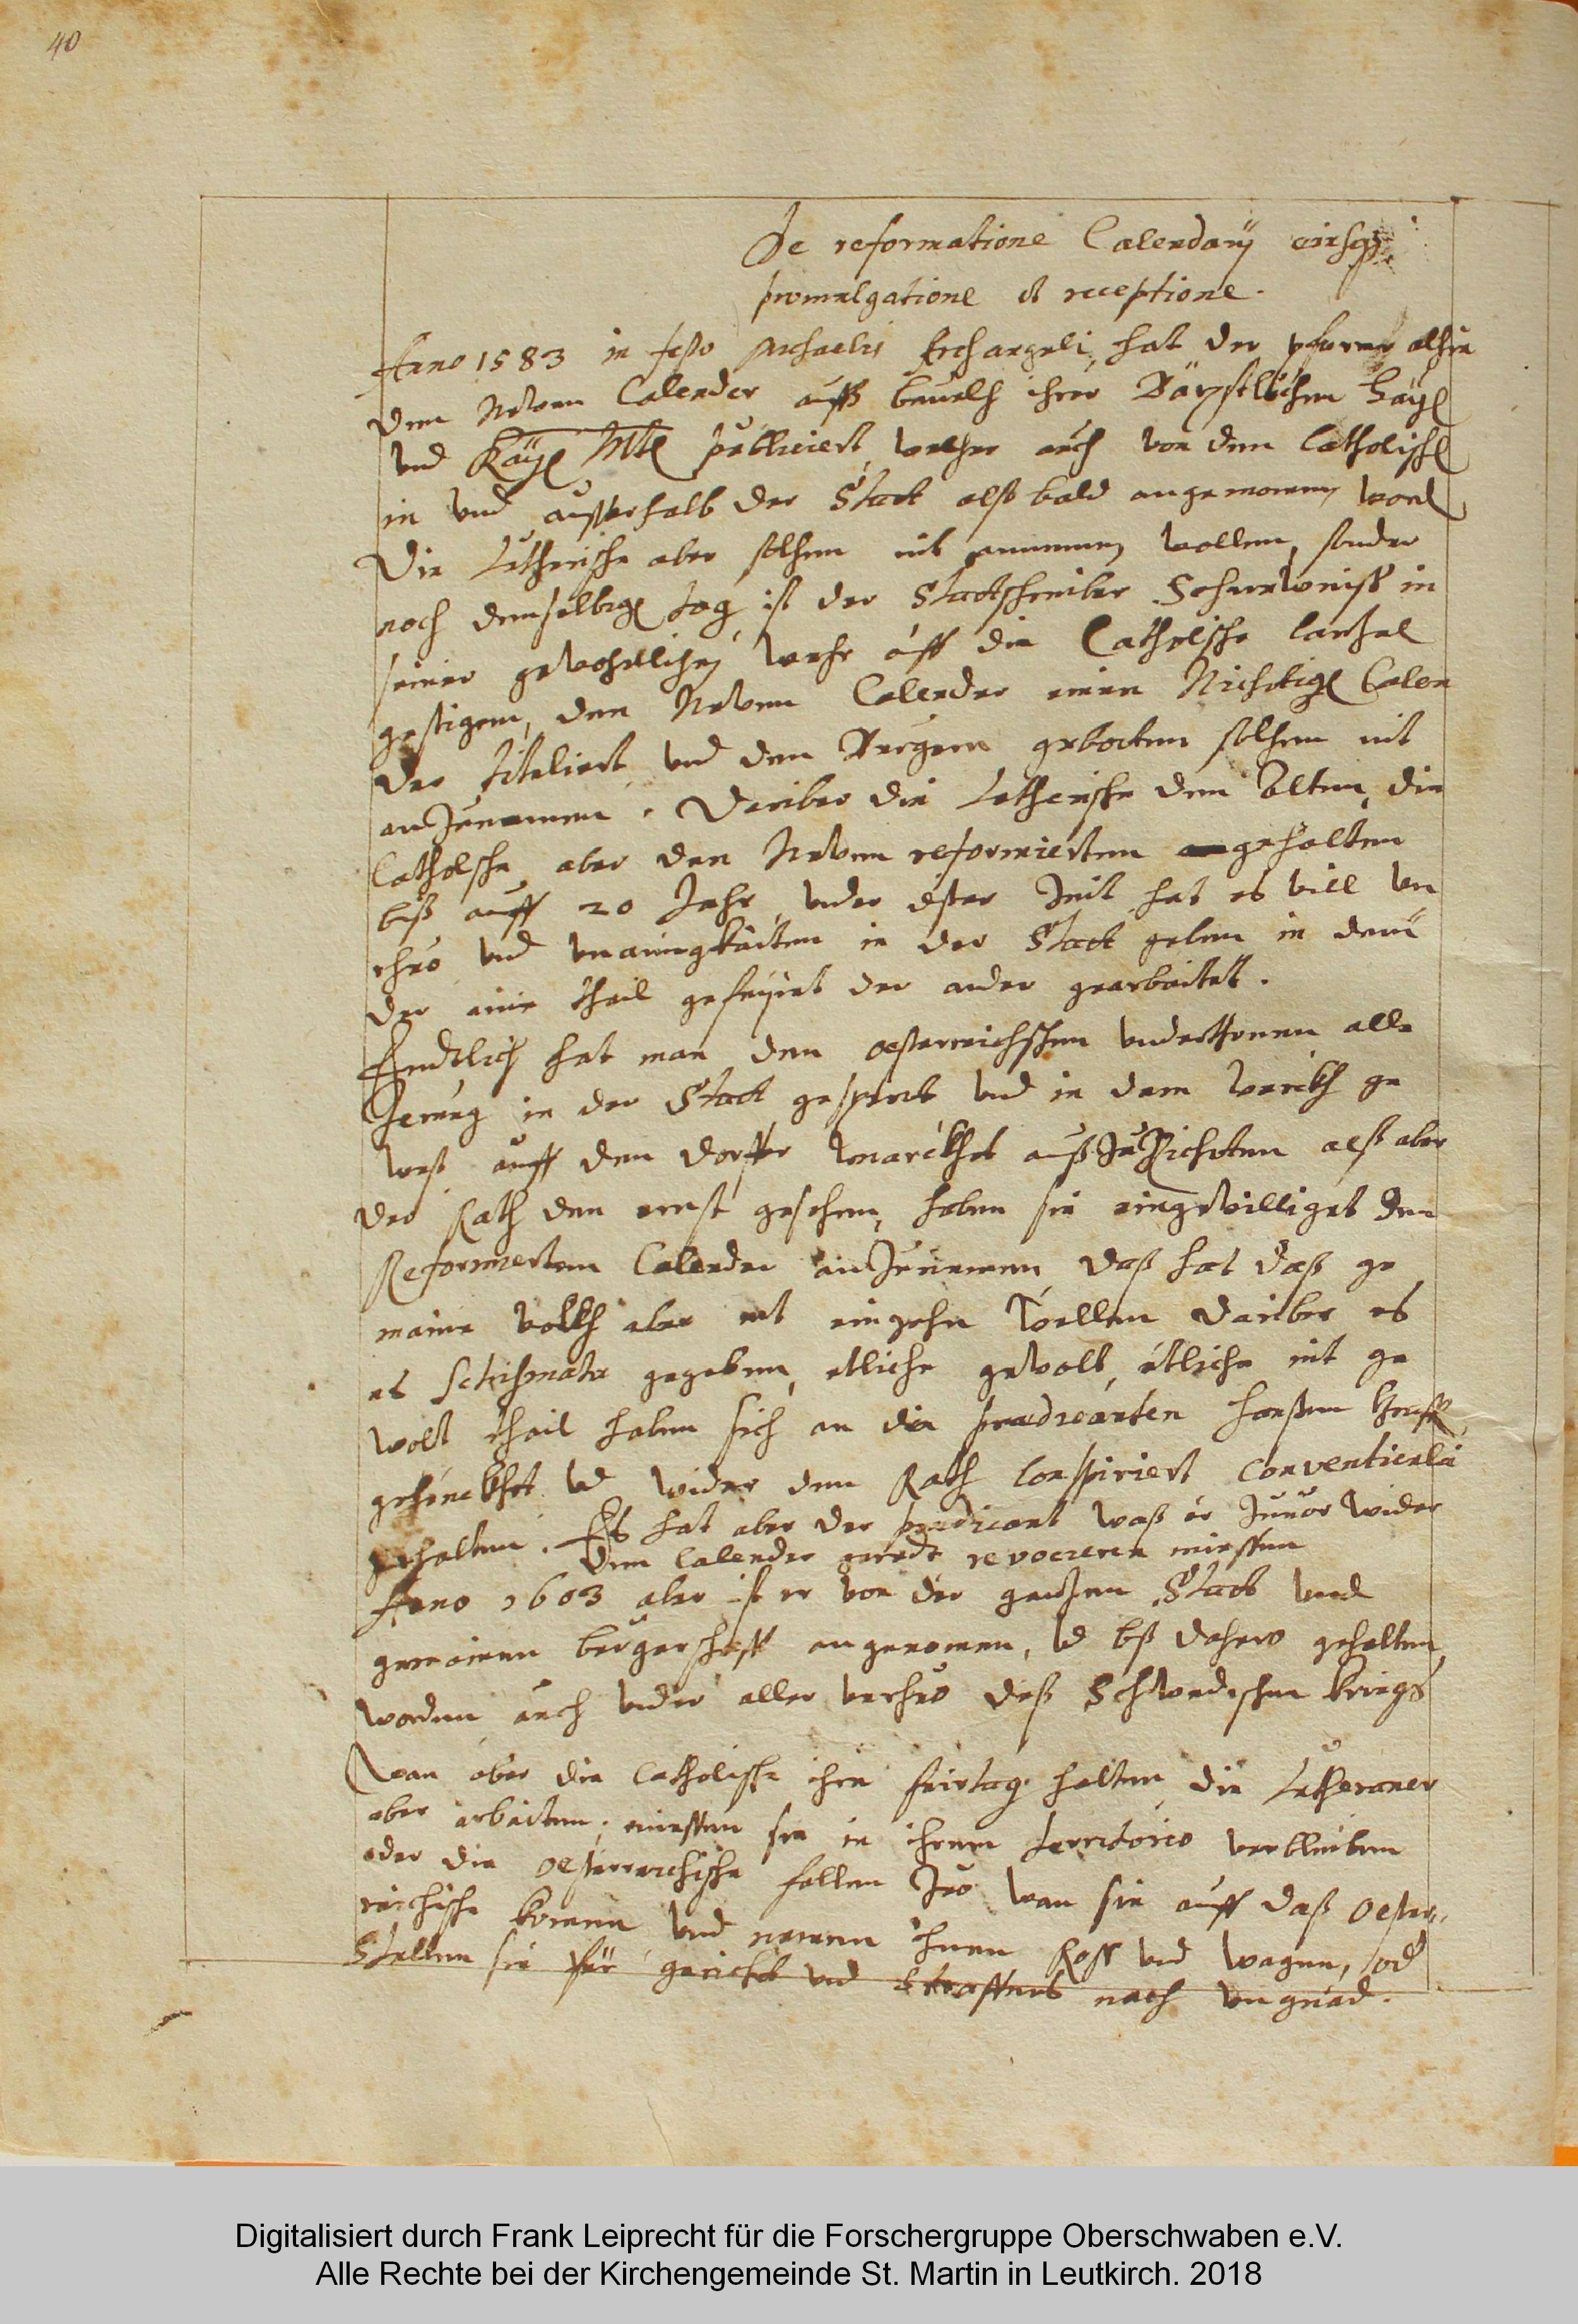 40
De reformatione Calendarij eiusq3
promulgatione et receptione.
Anno 1583 in festo Michaelis Archangeli, hat der pfarrer alhie
den Newen Calender auß beuelh ihrer Bäpstlichen Hayl
vnd Kay: Mtt: publiciert, welher auch von den Catholisch
in vnd ausserhalb der Statt alß bald angenommen word
Die Lutherische aber solhen nit annemmen wollen, sonder
noch denselbige tag ist der Stattschreiber in
seiner gewohnlichen wehr auff die Catholische Cantzel
gestigen, den Newen Calender einen Nichtige Calen
der titeliert vnd den Burgern gebotten solhen nit
anzunemmen. Dariber die Lutherische den Alten, die
Catholsche aber den Newen reformierten gehalten
biß auff 20 Jahr, vnder dißer Zeit hat es vill Vn
rhuo vnd vnainigkaiten in der Statt geben in dem
der eine theil gefeyret der ander gearbaitet.
Endtlich hat man den oesterreichischen vnderthonen alle
in der Statt gespert vnd in dem werckh ge
west auff den dorffer marckht auß Zurichten alß aber
der Rath den ernst gesehen, haben sie eingewilliget den
Reformierten Calender anzunemmen, daß hat daß ge
maine volckh aber nit eingehn wellen dariber es
es Schismata gegeben, etliche gewolt, etliche nit ge
wolt theil haben sich an die praedicanten
gehenckhet vnd wider den Rath Conspiriert Conventicula
gehalten. Es hat aber der predicant waß er zuuor wider
den Calender geredt revocieren miessen
Anno 1603 aber ist er von der gantzen Statt vnd
gemainen burgerschafft angenomen, vnd biß dahero gehalten
worden auch vnder aller vnrhuo deß Schwedischen kriegs
Wan aber die Catholische ihre feirtag halten die Lutheraner
aber arbaiten, miessen sie in ihrem territorio verbleiben
oder die oesterreichische fallen Zuo wan sie auff daß Oester-
reichische komen vnd nemen ihnen Roß vnd wagen, od
Stellen sie für gericht vnd straffens nach vngnad.
Digitalisiert durch Frank Leiprecht für die Forschergruppe Oberschwaben e.V.
Alle Rechte bei der Kirchengemeinde St. Martin in Leutkirch. 2018